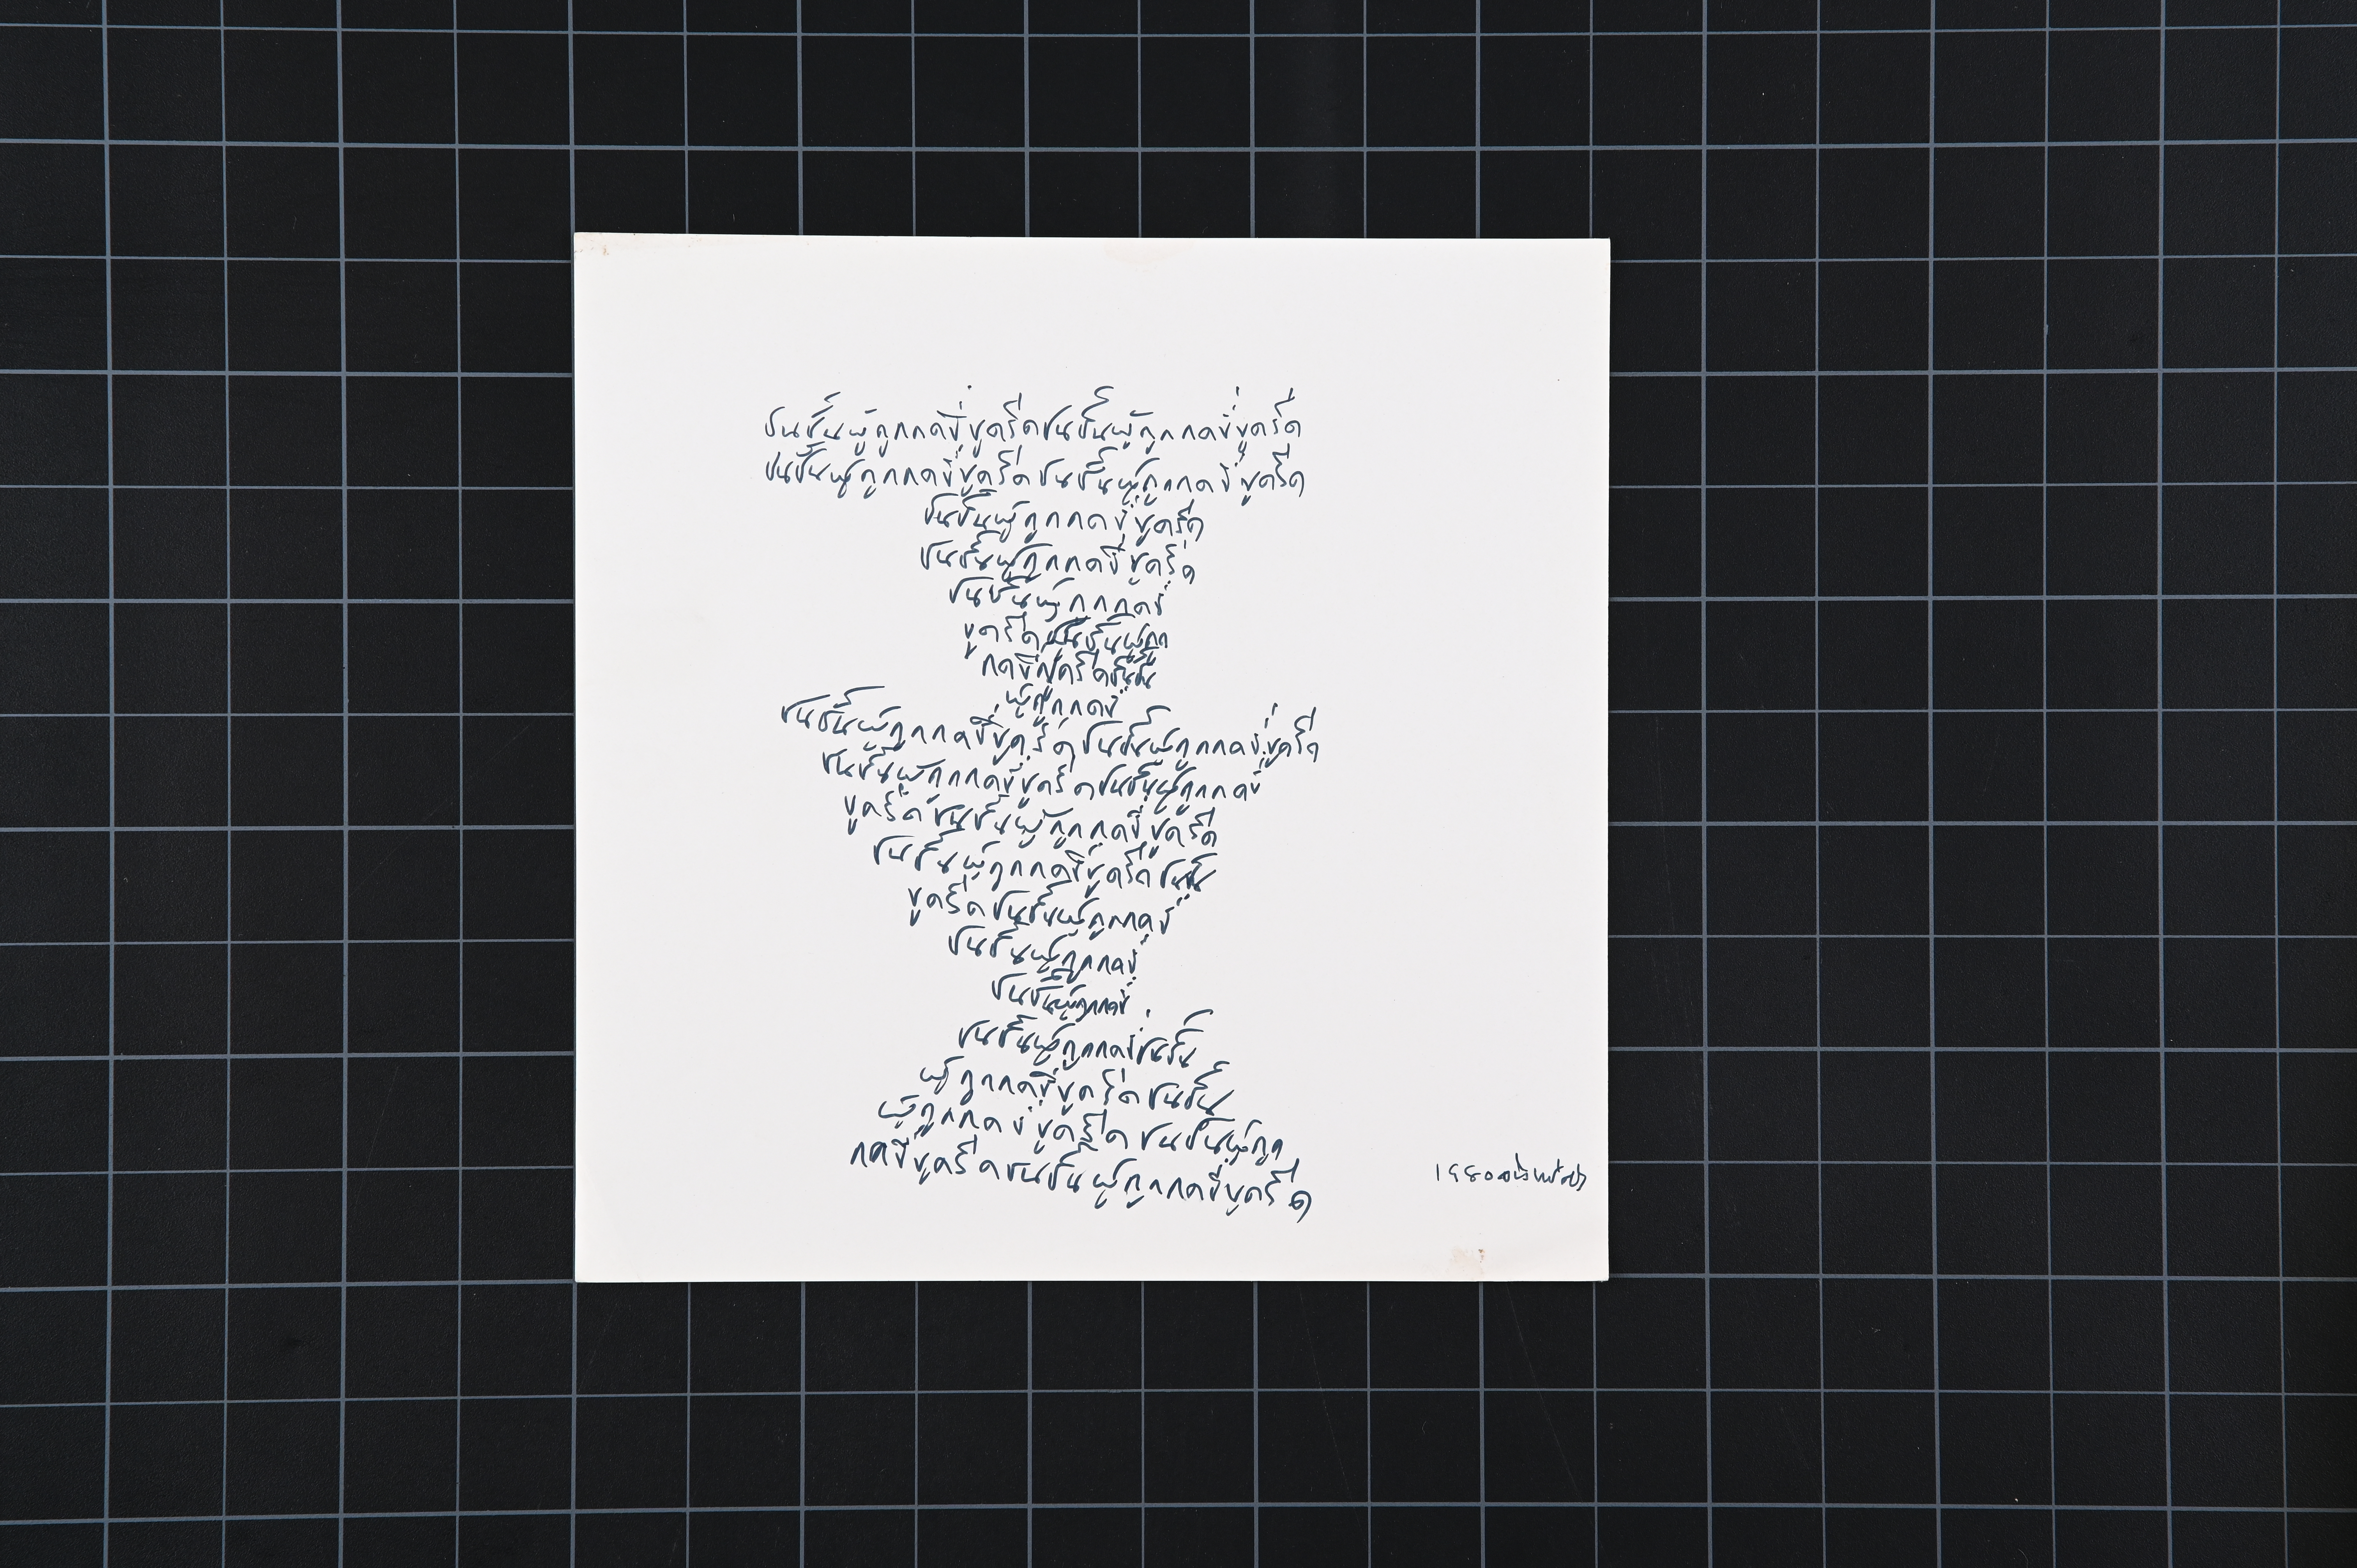 ชนชั้นผู้ถูกกดขี่ขูดรีดชนชั้นผู้ถูกกดขี่ขูดรีด
ชนชั้นผู้ถูกกดขี่ขูดรีดชนชั้นผู้ถูกกดขี่ขูดรีด
ชนชั้นผู้ถูกกดขี่ขูดรีด
ชนชั้นผู้ถูกกดขี่ขูดรีด
ชนชั้นผู้ถูกกดขี่
ขูดรีดชนชั้นผู้ถูก
กดขี่ขูดรีดชนชั้น
ผู้ถูกกดขี่
ชนชั้นผู้ถูกกดขี่ขูดรีดชนชั้นผู้ถูกกดขี่ขูดรีด
ชนชั้นผู้ถูกกดขี่ขูดรีดชนชั้นผู้ถูกกดขี่
ขูดรีดชนชั้นผู้ถูกกดขี่ขูดรีด
ชนชั้นผู้ถูกกดขี่ขูดรีดชนชั้น
ขูดรีดชนชั้นผู้ถูกกดขี่
ชนชั้นผู้ถูกกดขี่
ชนชั้นผู้ถูกกดขี่
ชนชั้นผู้ถูกกดขี่ชนชั้น
ผู้ถูกกดขี่ขูดรีดชนชั้น
ผู้ถูกกดขี่ขูดรีดชนชั้นผู้ถูก
กดขี่ขูดรีดชนชั้นผู้ถูกกดขี่ขูดรีด